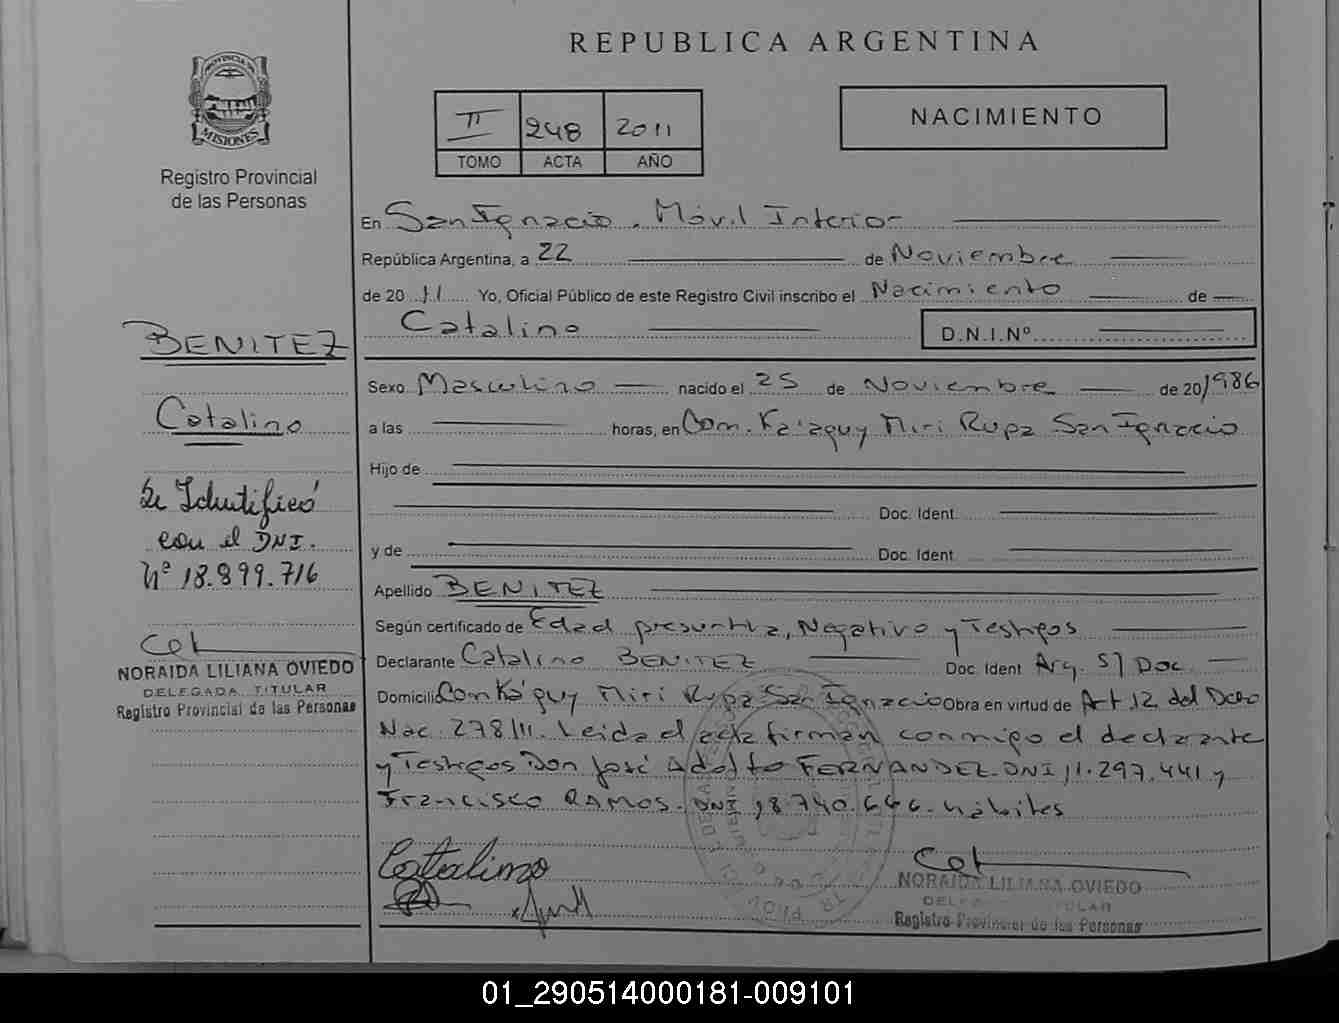 REPUBLICA ARGENTINA
PROVINCIA DE
MISIONES
Registro Provincial
de las Personas
II 248 2011
TOMO ACTA AÑO
NACIMIENTO
En San Ignacio. Móvil Interior
República Argentina, a 22 de Noviembre
de 20 11 Yo, Oficial Público de este Registro Civil inscribo el Nacimiento de
Catalino D.N.I.Nº
Sexo Masculino nacido el 25 de Noviembre de 20/986
a las horas, en Com. Ka'aguy Miri Rupa San Ignacio
Hijo de
Doc. Ident.
y de Doc. Ident.
Apellido BENITEZ
Según certificado de Edad presuntiva, Negativo y Testigos
Declarante Catalino BENITEZ Doc. Ident. Arg. S/ Doc.
Domicilio Com Ká'guy Miri Rupa San Ignacio Obra en virtud de Art 12 del Dcto
Nac. 278/11. Leida el acta firman conmigo el declarante
y Testigos Don José Adolfo FERNANDEZ. DNI 11.297.441 y
Francisco RAMOS. DNI 18.740.646. hábiles
Catalino
NORAIDA LILIANA OVIEDO
DELEGADA TITULAR
Registro Provincial de las Personas
BENITEZ
Catalino
Se Identificó
con el DNI.
Nº 18.899.716
NORAIDA LILIANA OVIEDO
DELEGADA TITULAR
Registro Provincial de las Personas
01_290514000181-009101